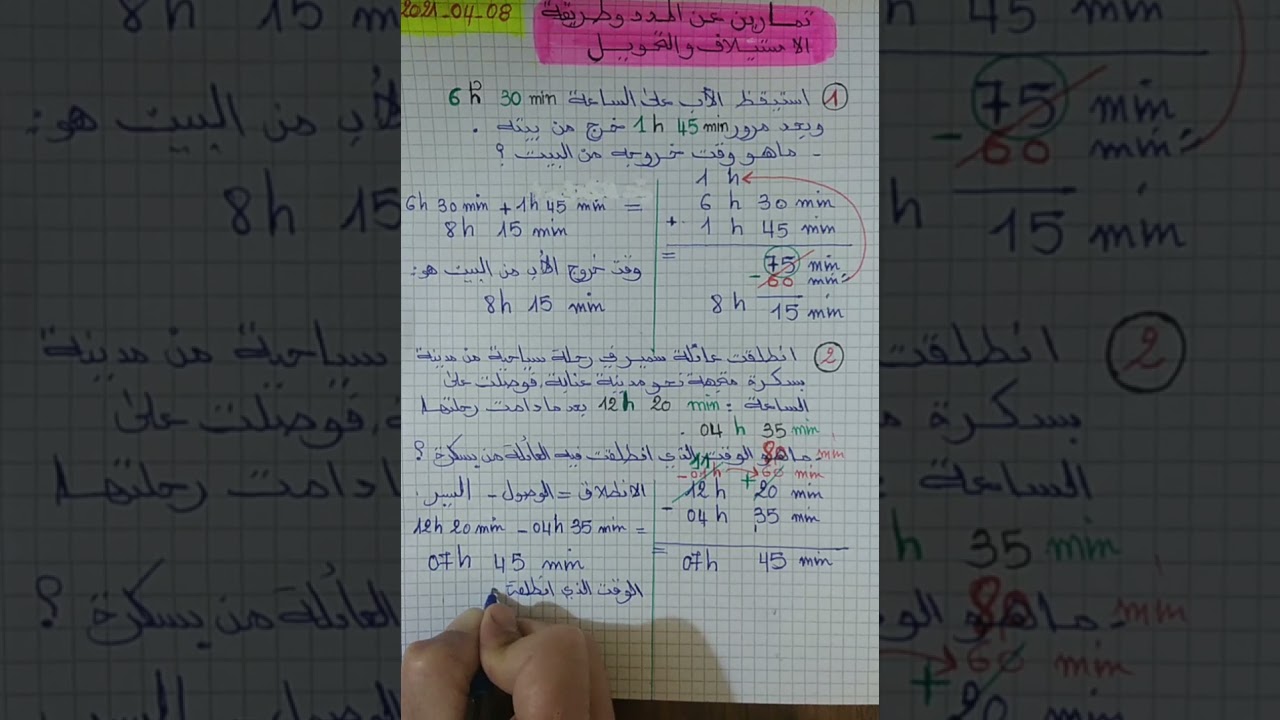 2021-04-08
تمارين عن المدد وطريقة
الاستيلاف والتحويل
① استيقظ الأب على الساعة 6h 30 min
وبعد مرور 1h 45 min خرج من بيته .
- ماهو وقت خروجه من البيت ؟
6h 30 min + 1h 45 min =
8h 15 min
وقت خروج الأب من البيت هو:
8h 15 min
1 h
6 h 30 min
+ 1 h 45 min
=
75 min
- 60 min
8 h 15 min
② انطلقت عائلة سمير في رحلة سياحية من مدينة
بسكرة متجهة نحو مدينة عنابة، فوصلت على
الساعة : 12h 20 min بعد مادامت رحلتها
04 h 35 min .
- ماهو الوقت الذي انطلقت فيه العائلة من بسكرة ؟
الانطلاق = الوصول - السير
12h 20 min - 04h 35 min =
07h 45 min
الوقت الذي انطلقت
11 80 min
- 01 h + 60 min
12 h 20 min
- 04 h 35 min
= 07h 45 min